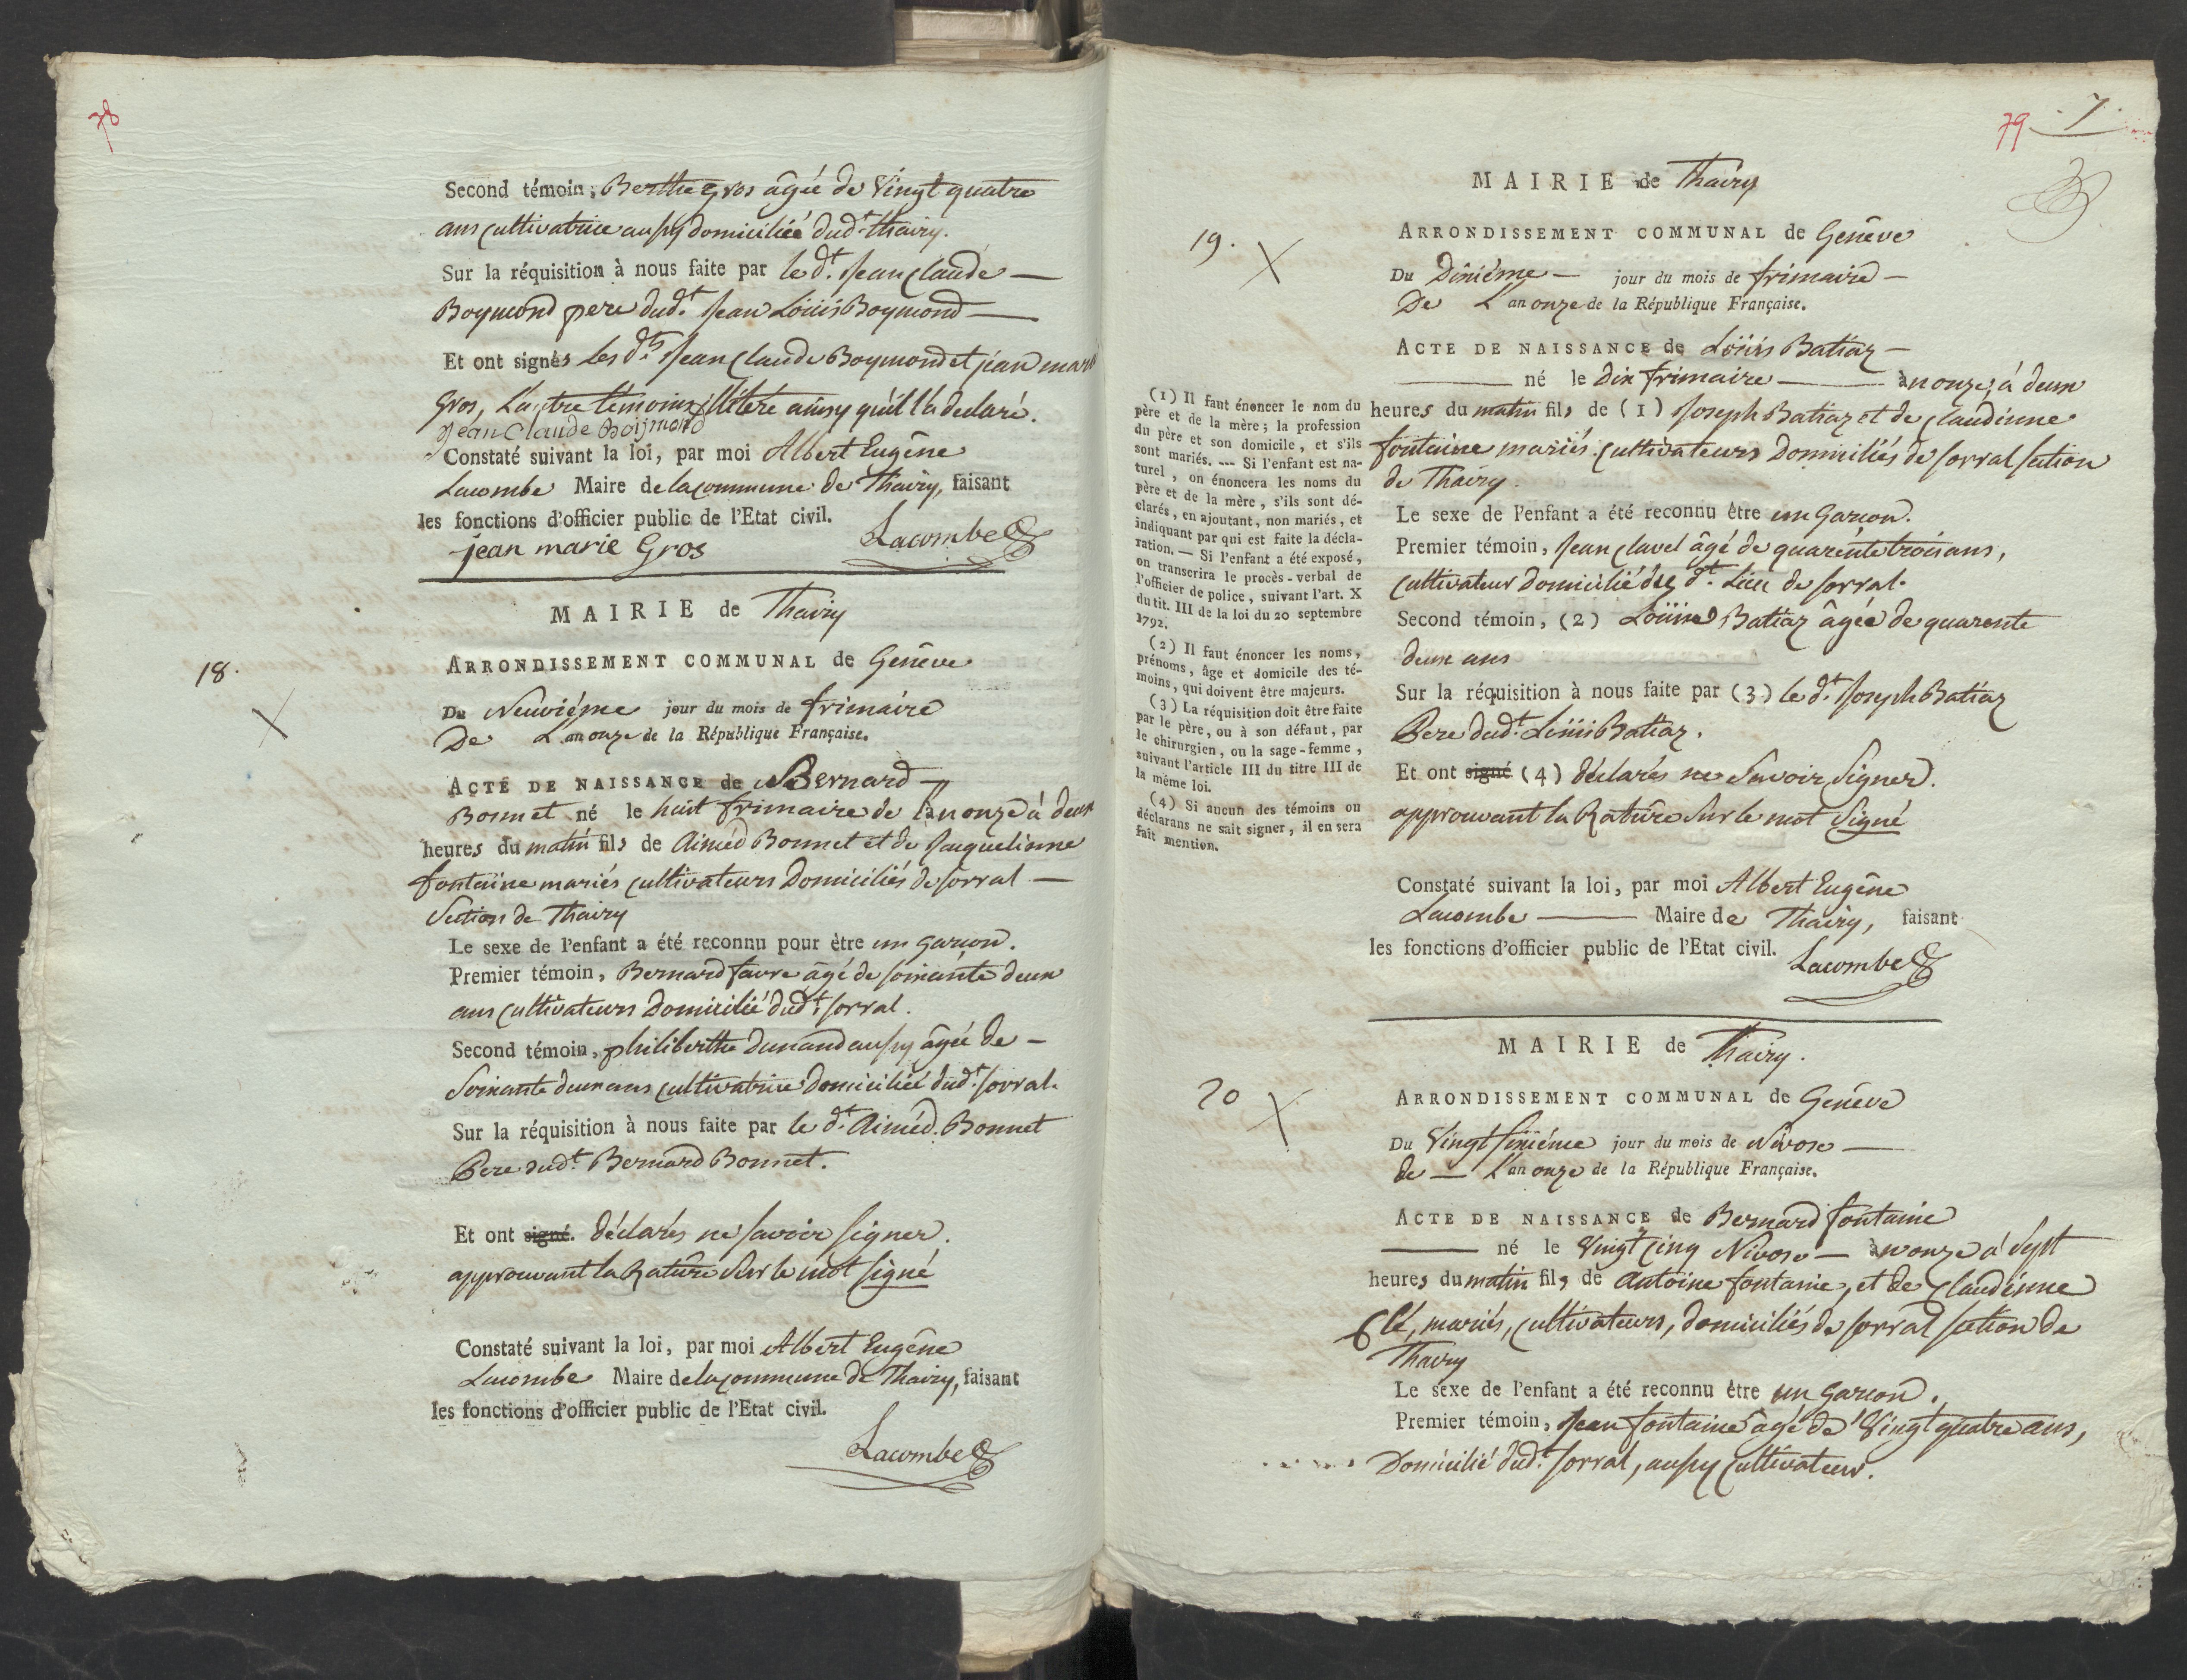 78
Second témoin, Berthe Gros âgée de Vingt quatre
ans cultivatrice aussy domiciliée dud.t thairy.
Sur la réquisition à nous faite par le d.t Jean Claude —
Boymond pere dud.t Jean Loüis Boymond —
Et ont signés les d.ts Jean Claude Boymond et jean marie
gros, L'autre témoins illiteré ainsy qu'il l'a declaré.
Jean Claude Boijmond
Constaté suivant la loi, par moi Albert Eugêne
Lacombe Maire de la commune de Thairy, faisant
les fonctions d'officier public de l'Etat civil.
jean marie Gros Lacombe
MAIRIE de Thairy
18.
ARRONDISSEMENT COMMUNAL de Genêve
Du Neuviéme jour du mois de frimaire
De L'an onze de la République Française.
ACTE DE NAISSANCE de Bernard —
Bonnet né le huit frimaire de l'an onze à deux
heures du matin fils de Aiméd Bonnet et de Jauquelinne
fontaine mariés cultivateurs Domiciliés de sorral —
Section de Thairy
Le sexe de l'enfant a été reconnu pour être un garçon.
Premier témoin, Bernard favre âgé de soixante deux
ans cultivateurs Domicilié dud.t sorral.
Second témoin, philiberthe Dunand aussy âgée de —
Soixante deux ans cultivatrice domiciliée dud.t sorral.
Sur la réquisition à nous faite par le d.t Aiméd. Bonnet
Pere dud.t Bernard Bonnet.
Et ont signé. déclarés ne savoir signer.
approuvant la Rature Sur le mot signé
Constaté suivant la loi, par moi Albert Eugêne
Lacombe Maire de la commune de Thairy, faisant
les fonctions d'officier public de l'Etat civil.
Lacombe
79 7.
MAIRIE de Thairy
19.
ARRONDISSEMENT COMMUNAL de Genêve
Du Dixiéme — jour du mois de frimaire —
De L'an onze de la République Française.
ACTE DE NAISSANCE de Loüis Batiaz —
— né le Dix frimaire — an onze, à deux
heures du matin fils de (1) Joseph Batiaz et de Claudinne
fontaine mariés cultivateurs Domiciliés de sorral section
de Thairy.
Le sexe de l'enfant a été reconnu être un Garçon.
Premier témoin, Jean Clavel âgé de quarente trois ans,
cultivateur domicilié du d.t Lieu de sorral.
Second témoin, (2) Loüise Batiaz âgée de quarente
deux ans
Sur la réquisition à nous faite par (3) le d.t Joseph Batiaz
Pere dud.t Loüis Batiaz.
Et ont signé (4) déclarés ne Savoir Signer.
approuvant la Rature Sur le mot Signé
Constaté suivant la loi, par moi Albert Eugêne
Lacombe — Maire de Thairy, faisant
les fonctions d'officier public de l'Etat civil.
Lacombe
(1) Il faut énoncer le nom du
père et de la mère; la profession
du père et son domicile, et s'ils
sont mariés. --- Si l'enfant est na-
turel, on énoncera les noms du
père et de la mère, s'ils sont dé-
clarés, en ajoutant, non mariés, et
indiquant par qui est faite la décla-
ration. — Si l'enfant a été exposé,
on transcrira le procès-verbal de
l'officier de police, suivant l'art. X
du tit. III de la loi du 20 septembre
1792.
(2) Il faut énoncer les noms,
prénoms, âge et domicile des té-
moins, qui doivent être majeurs.
(3) La réquisition doit être faite
par le père, ou à son défaut, par
le chirurgien, ou la sage-femme,
suivant l'article III du titre III de
la même loi.
(4) Si aucun des témoins ou
déclarans ne sait signer, il en sera
fait mention.
MAIRIE de Thairy.
20
ARRONDISSEMENT COMMUNAL de Genêve
Du Vingt sixiéme jour du mois de Nivose —
de — L'an onze de la République Française.
ACTE DE NAISSANCE de Bernard fontaine
— né le Vingt cinq Nivose — an onze à Sept
heures du matin fils de Antoine fontaine, et de Claudinne
Clé, mariés, cultivateurs, domiciliés de sorral section de
Thairy
Le sexe de l'enfant a été reconnu être un Garçon.
Premier témoin, Jean fontaine âgé de Vingt quatre ans,
Domicilié dud.t sorral, aussy cultivateur.